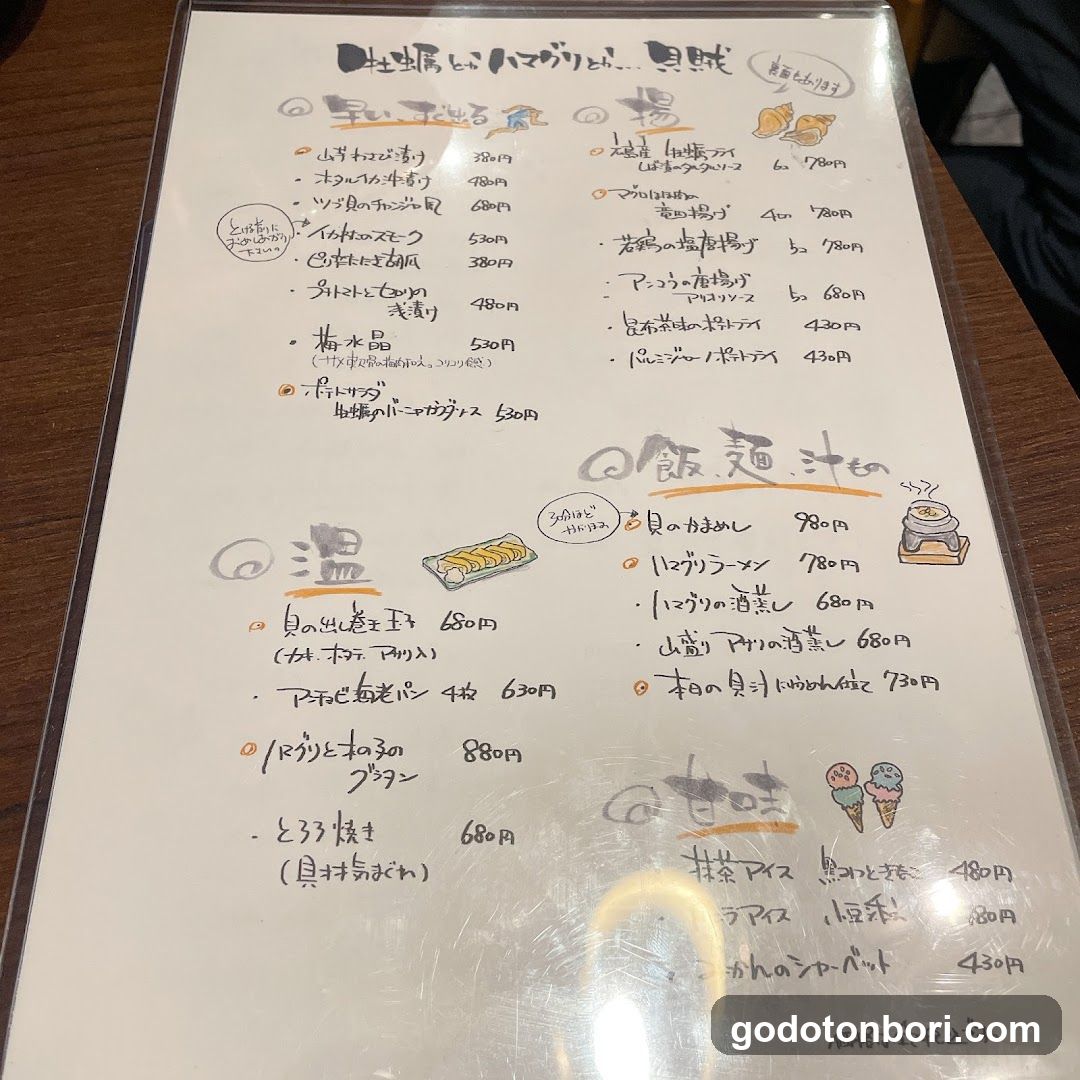 牡蠣とかハマグリとか… 貝賊
裏面もあります
早い、すぐ出る
山芋わさび漬け 380円
ホタルイカ沖漬け 480円
ツブ貝のチャンジャ風 680円
とける前に
おめしあがり
下さい。
イカ のスモーク 530円
ピリ辛たたき胡瓜 380円
プチトマトとセロリの
浅漬け 480円
梅水晶 530円
(サメ軟骨の梅肉和え。コリコリ食感)
ポテトサラダ
牡蠣のバーニャカウダソース 530円
揚
広島産 牡蠣フライ
しば漬のタルタルソース 6コ 780円
マグロほほ肉の
竜田揚げ 4コ 780円
若鶏の塩唐揚げ 5コ 780円
アンコウの唐揚げ
アリオリソース 5コ 680円
昆布茶味のポテトフライ 430円
パルミジャーノポテトフライ 430円
飯、麺、汁もの
30分ほど
かかります
貝のかまめし 980円
ハマグリラーメン 780円
ハマグリの酒蒸し 680円
山盛りアサリの酒蒸し 680円
本日の貝汁 にゅうめん仕立て 730円
温
貝の出し巻き玉子 680円
(カキ、ホタテ、アサリ入)
アンチョビ海老パン 4枚 630円
ハマグリと木の子の
グラタン 880円
とろろ焼き 680円
(貝 気まぐれ)
甘味
抹茶アイス 黒みつときなこ 480円
ラアイス 小豆 80円
みかんのシャーベット 430円
godotonbori.com